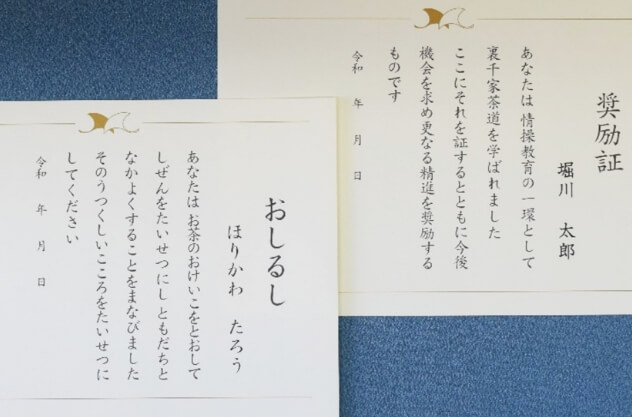 奨励証
堀川 太郎
あなたは 情操教育の一環として
裏千家茶道を学ばれました
ここにそれを証するとともに今後
機会を求め更なる精進を奨励する
ものです
令和 年 月 日
おしるし
ほりかわ たろう
あなたは お茶のおけいこをとおして
しぜんをたいせつにし ともだちと
なかよくすることをまなびました
そのうつくしいこころをたいせつに
してください
令和 年 月 日